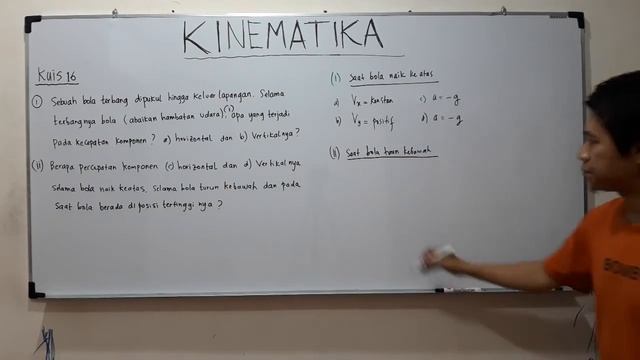 KINEMATIKA
Kuis 16
(I) Sebuah bola terbang dipukul hingga keluar lapangan. Selama
terbangnya bola (abaikan hambatan udara), (I) apa yang terjadi
pada kecepatan komponen? a) horizontal dan b) Vertikalnya?
(II) Berapa percepatan komponen (c) horizontal dan d) Vertikalnya
selama bola naik keatas, selama bola turun kebawah dan pada
saat bola berada di posisi tertingginya?
(I) Saat bola naik keatas
a) Vx = konstan c) a = -g
b) Vy = positif d) a = -g
(II) Saat bola turun kebawah